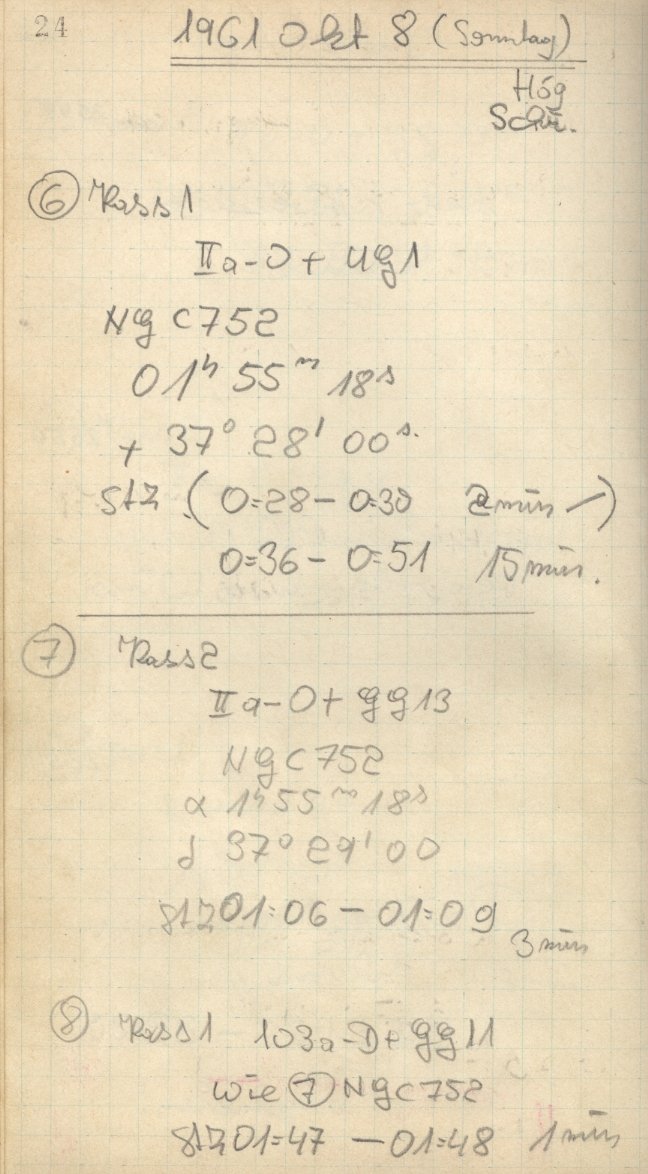 24
1961 Okt 8 (Sonntag)
Hög
Schü.
⑥ Kass 1
IIa-O + UG1
NGC 752
01ʰ 55ᵐ 18ˢ
+ 37° 28' 00ˢ·
StZ (0=28 - 0=30 2 min -)
0=36 - 0=51 15 min.
⑦ Kass 2
IIa-O + GG13
NGC 752
α 1ʰ 55ᵐ 18ˢ
δ 37° 29' 00
StZ 01:06 - 01=09 3 min
⑧ Kass 1 103a-D + GG11
wie ⑦ NGC 752
StZ 01=47 - 01=48 1 min